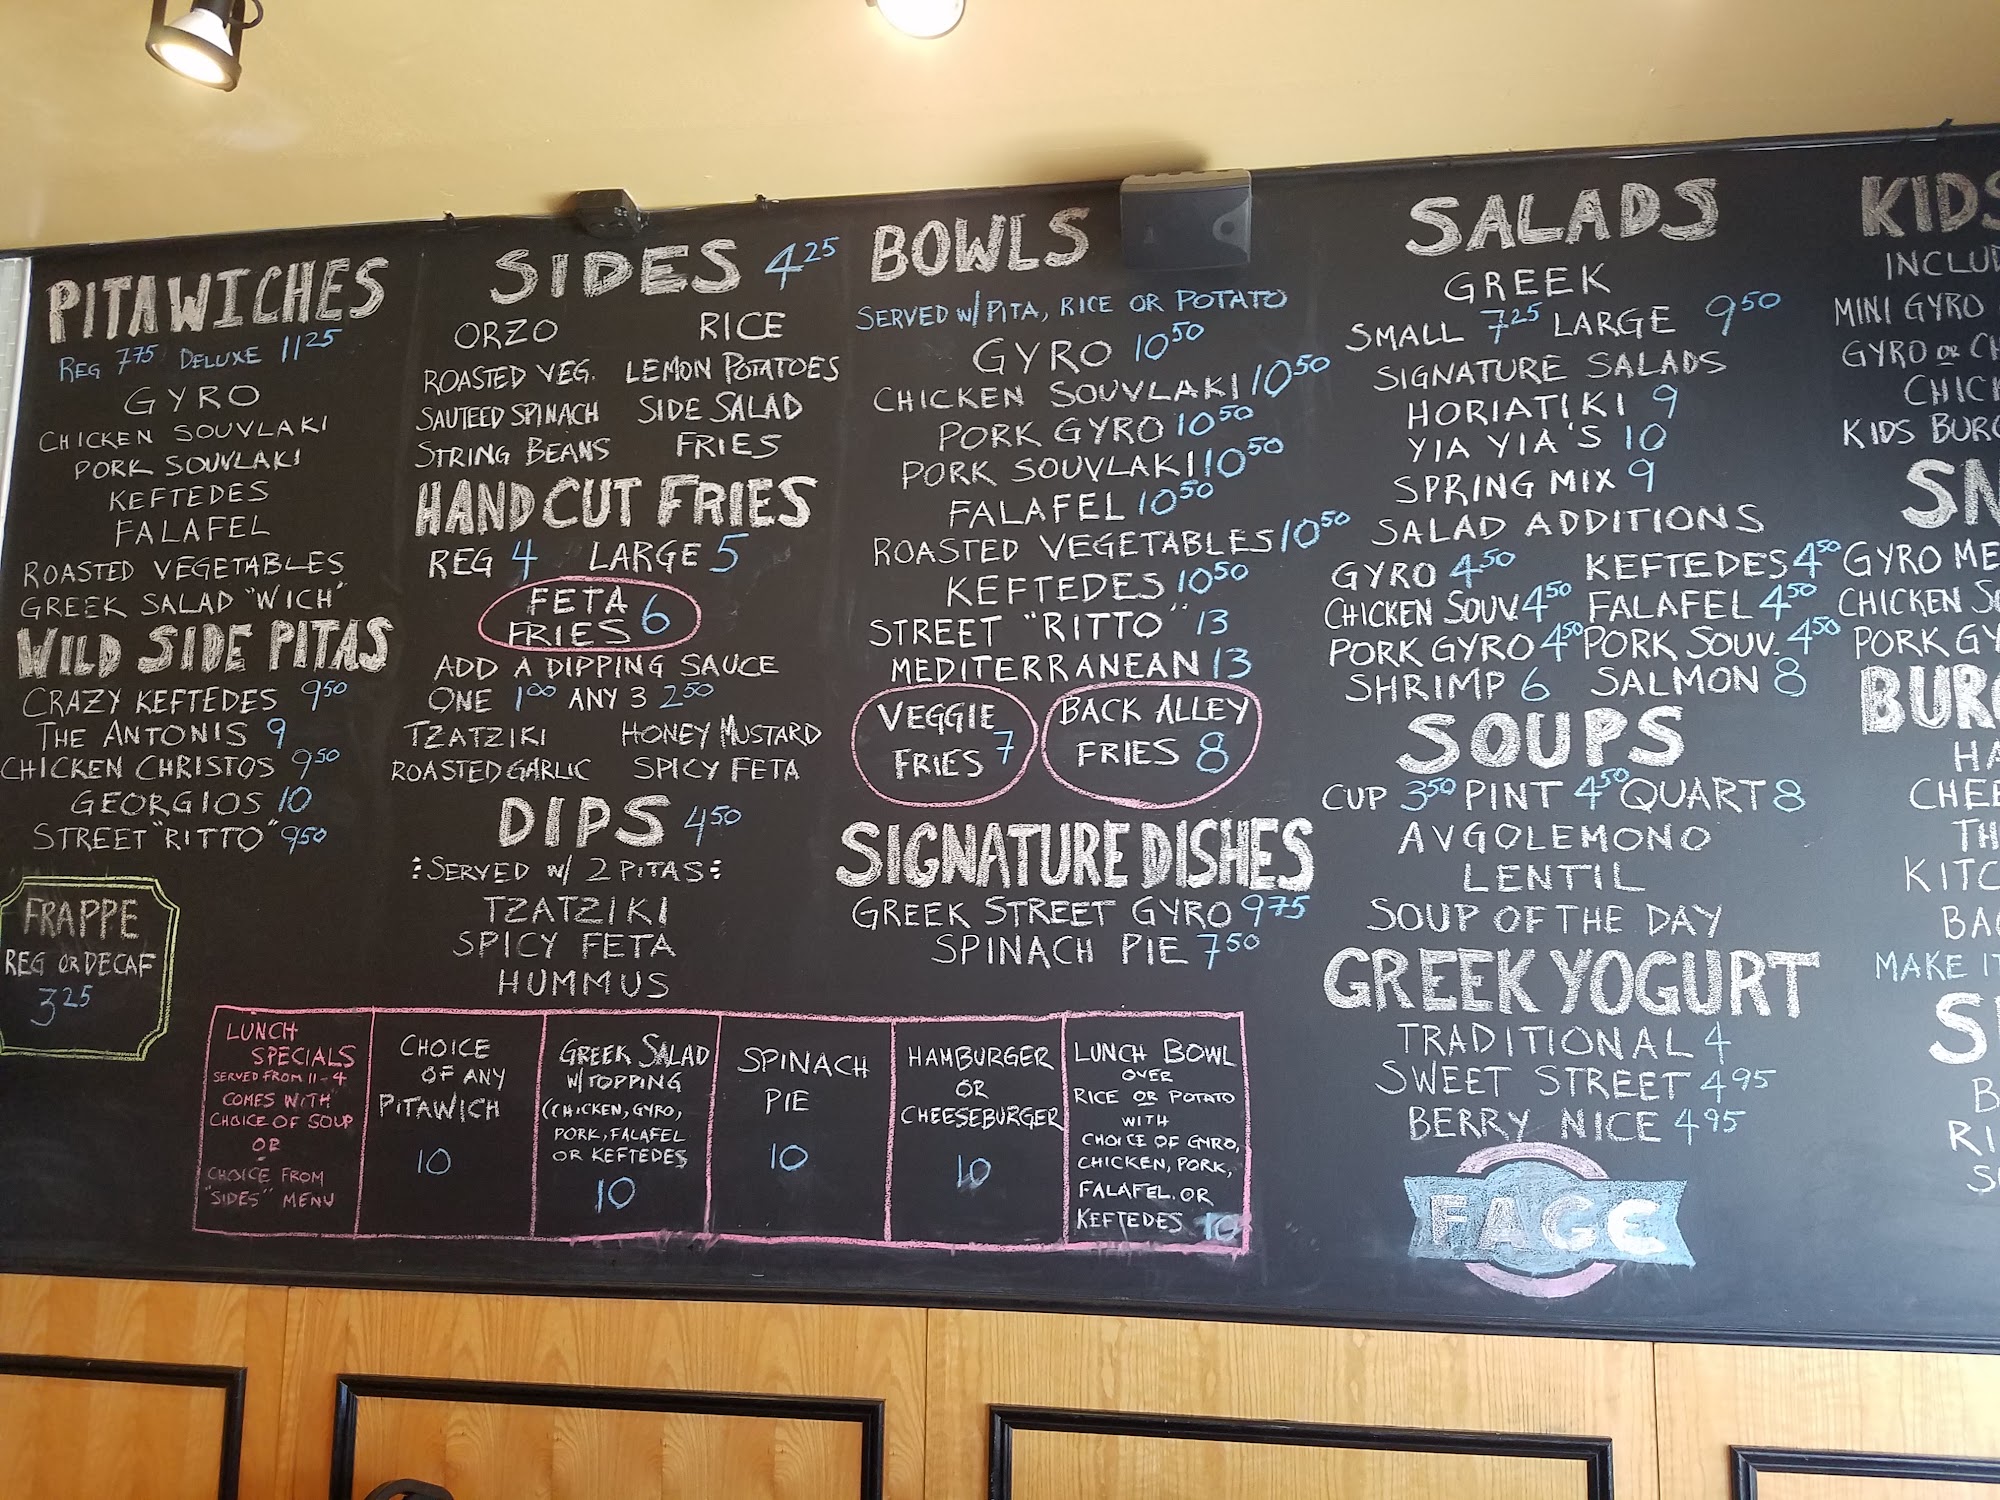 PITAWICHES
REG 7.75 DELUXE 11 25
GYRO
CHICKEN SOUVLAKI
PORK SOUVLAKI
KEFTEDES
FALAFEL
ROASTED VEGETABLES
GREEK SALAD "WICH"
WILD SIDE PITAS
CRAZY KEFTEDES 9 50
THE ANTONIS 9
CHICKEN CHRISTOS 9 50
GEORGIOS 10
STREET "RITTO" 9 50
FRAPPE
REG OR DECAF
3 25
SIDES 4 25
ORZO RICE
ROASTED VEG. LEMON POTATOES
SAUTEED SPINACH SIDE SALAD
STRING BEANS FRIES
HAND CUT FRIES
REG 4 LARGE 5
FETA
FRIES 6
ADD A DIPPING SAUCE
ONE 1 00 ANY 3 2 50
TZATZIKI HONEY MUSTARD
ROASTED GARLIC SPICY FETA
DIPS 4 50
:SERVED W/ 2 PITAS:
TZATZIKI
SPICY FETA
HUMMUS
BOWLS
SERVED W/ PITA, RICE OR POTATO
GYRO 10 50
CHICKEN SOUVLAKI 10 50
PORK GYRO 10 50
PORK SOUVLAKI 10 50
FALAFEL 10 50
ROASTED VEGETABLES 10 50
KEFTEDES 10 50
STREET "RITTO" 13
MEDITERRANEAN 13
VEGGIE
FRIES 7
BACK ALLEY
FRIES 8
SIGNATURE DISHES
GREEK STREET GYRO 9 75
SPINACH PIE 7 50
SALADS
GREEK
SMALL 7 25 LARGE 9 50
SIGNATURE SALADS
HORIATIKI 9
YIA YIA'S 10
SPRING MIX 9
SALAD ADDITIONS
GYRO 4 50 KEFTEDES 4 50
CHICKEN SOUV. 4 50 FALAFEL 4 50
PORK GYRO 4 50 PORK SOUV. 4 50
SHRIMP 6 SALMON 8
SOUPS
CUP 3 50 PINT 4 50 QUART 8
AVGOLEMONO
LENTIL
SOUP OF THE DAY
GREEK YOGURT
TRADITIONAL 4
SWEET STREET 4 95
BERRY NICE 4 95
FAGE
KIDS
INCLUD
MINI GYRO
GYRO OR CH
CHICK
KIDS BURG
SN
GYRO ME
CHICKEN SO
PORK GY
BURG
HA
CHEE
TH
KITC
BAC
MAKE IT
S
B
RI
S
LUNCH
SPECIALS
SERVED FROM 11-4
COMES WITH
CHOICE OF SOUP
OR
CHOICE FROM
"SIDES" MENU
CHOICE
OF ANY
PITAWICH
10
GREEK SALAD
W/TOPPING
(CHICKEN, GYRO,
PORK, FALAFEL
OR KEFTEDES
10
SPINACH
PIE
10
HAMBURGER
OR
CHEESEBURGER
10
LUNCH BOWL
OVER
RICE OR POTATO
WITH
CHOICE OF GYRO,
CHICKEN, PORK,
FALAFEL OR
KEFTEDES 10